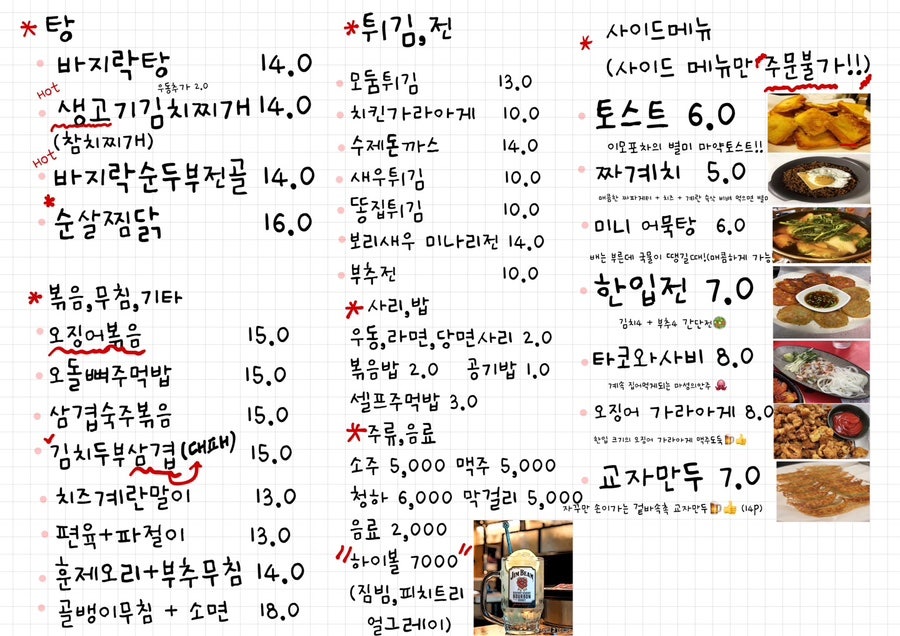 * 탕
바지락탕 14.0
우동추가 2.0
Hot 생고기김치찌개 14.0
(참치찌개)
Hot 바지락순두부전골 14.0
* 순살찜닭 16.0
* 볶음,무침,기타
오징어볶음 15.0
오돌뼈주먹밥 15.0
삼겹숙주볶음 15.0
김치두부삼겹(대패) 15.0
치즈계란말이 13.0
편육+파절이 13.0
훈제오리+부추무침 14.0
골뱅이무침 + 소면 18.0
* 튀김,전
모둠튀김 13.0
치킨가라아게 10.0
수제돈까스 14.0
새우튀김 10.0
똥집튀김 10.0
보리새우 미나리전 14.0
부추전 10.0
* 사리,밥
우동,라면,당면사리 2.0
볶음밥 2.0 공기밥 1.0
셀프주먹밥 3.0
* 주류,음료
소주 5,000 맥주 5,000
청하 6,000 막걸리 5,000
음료 2,000
"하이볼 7000"
(짐빔,피치트리
얼그레이)
JIM BEAM
BOURBON
* 사이드메뉴
(사이드 메뉴만 주문불가!!)
토스트 6.0
이모포차의 별미 마약토스트!!
짜계치 5.0
매콤한 짜파게티 + 치즈 + 계란 슥삭 비벼 먹으면 별미
미니 어묵탕 6.0
배는 부른데 국물이 땡길때!(매콤하게 가능
한입전 7.0
김치4 + 부추4 간단전
타코와사비 8.0
계속 집어먹게되는 마성의안주 🐙
오징어 가라아게 8.0
한입 크기의 오징어 가라아게 맥주도둑🍺👍
교자만두 7.0
자꾸만 손이가는 겉바속촉 교자만두🍺👍 (14P)